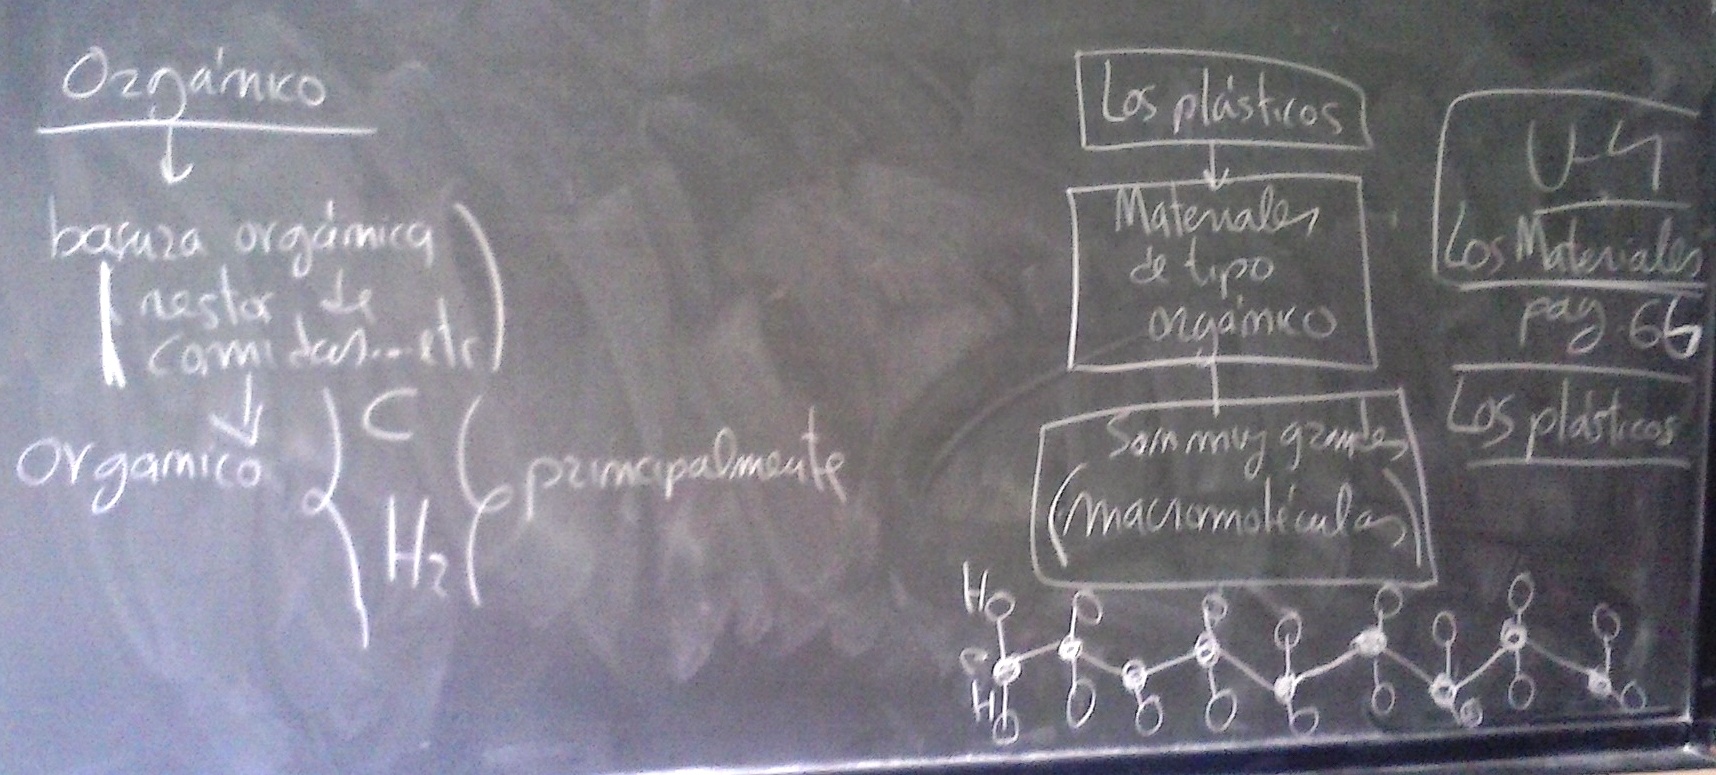 Orgánico
basura orgánica
restos de
comidas...etc
organico
C
H2
principalmente
Los plásticos
Materiales
de tipo
orgánico
Son muy grandes
(macromoléculas)
H
C
H
U-4
Los Materiales
pag. 66
Los plásticos